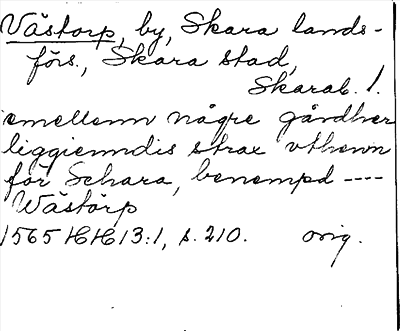 Västorp, by, Skara lands-
förs., Skara stad,
Skarab. l.
emellenn någre gårdher
liggienndis strax vthenn
för Schara, benempd ----
Wästörp
1565 HH 13:1, s. 210. orig.